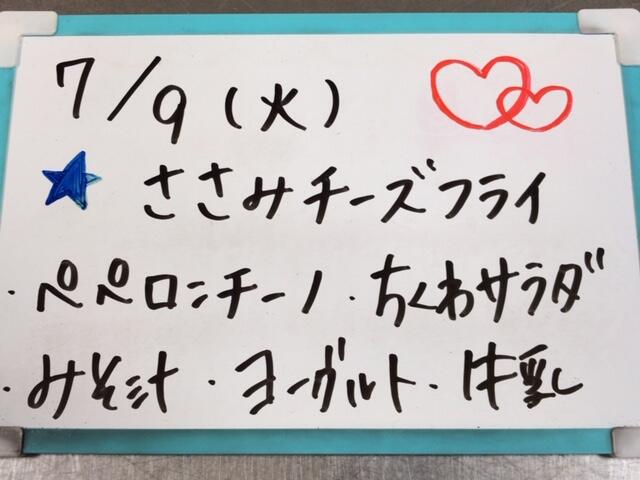 7/9(火)
★ ささみチーズフライ
・ペペロンチーノ・ちくわサラダ
・みそ汁・ヨーグルト・牛乳